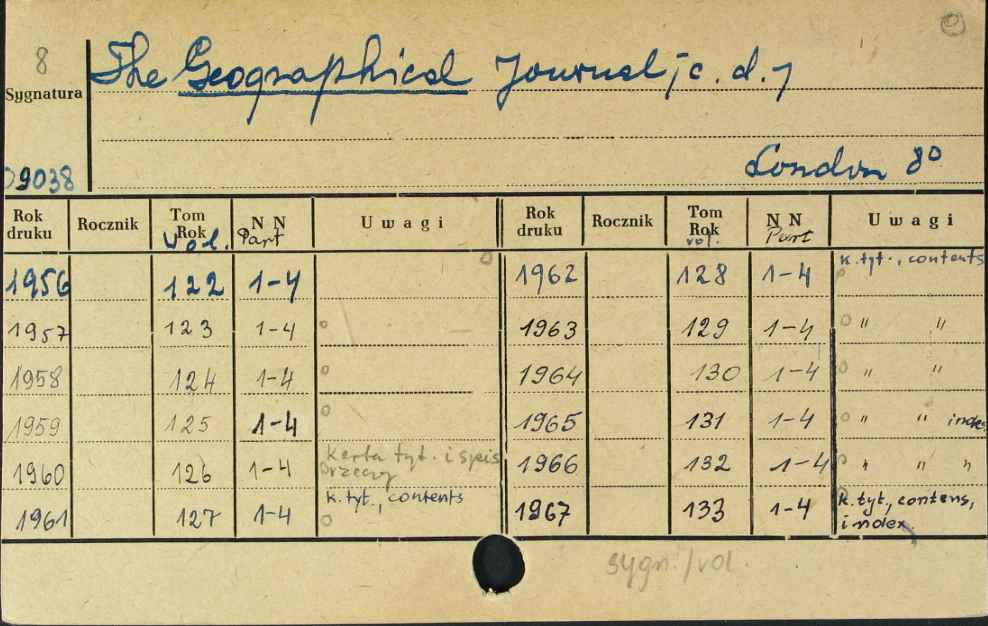 8
The Geographical Journal /c. d. /
Sygnatura
London 8°
9038
Rok druku Rocznik Tom Rok Vol. N N Part Uwagi Rok druku Rocznik Tom Rok vol. N N Part Uwagi
1956 122 1-4 1962 128 1-4 k. tyt., contents
1957 123 1-4 1963 129 1-4 " "
1958 124 1-4 1964 130 1-4 " "
1959 125 1-4 1965 131 1-4 " " index
1960 126 1-4 Karta tyt. i spis rzeczy 1966 132 1-4 " " "
1961 127 1-4 k. tyt., contents 1967 133 1-4 k. tyt., contens,
index
sygn./vol.